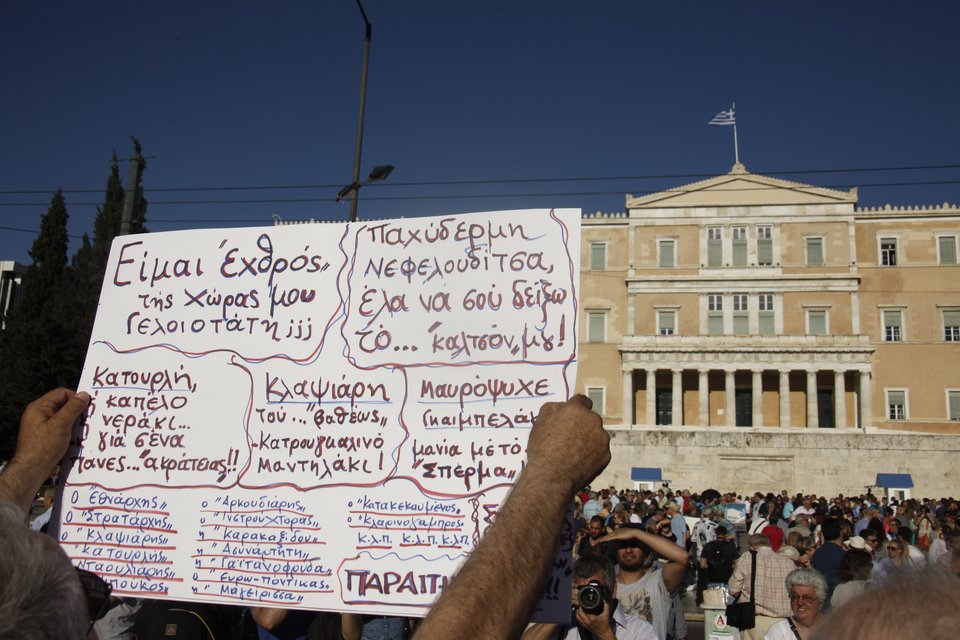 Είμαι "Εχθρός"
της Χώρας μου
Γελοιοτάτη ¡¡¡
Παχύδερμη
Νεφελουδίτσα,
έλα να σού δείξω
τό... "καλτσόν" μγ!
Κατουρλή,
καπέλο
νεράκι...
γιά σένα
πάνες... "ακράτειας"!!
Κλαψιάρη
τού... "βαθέως"
Κατρουγκαλινό
Μαντηλάκι!
Μαυρόψυχε
μανία με τό
"Σπέρμα"
ο "Εθνάρχης"
ο "Στρατάρχης"
"Κλαψιάρης"
"Κατουρλής"
"Νταουλιάρης"
ο "Αρκουδιάρης"
ο "Ντρουχτόρας"
η "Καρακαξίδου"
η "Ασυναρτήτη"
η "Γαϊτανοφρύδα"
ο "Ευρω-πόντικας"
η "Μαγείρισσα"
ο "Κατακεκαυμένος"
ο "Κλαρινογαμπρός"
κ.λ.π κ.λ.π κ.λ.π